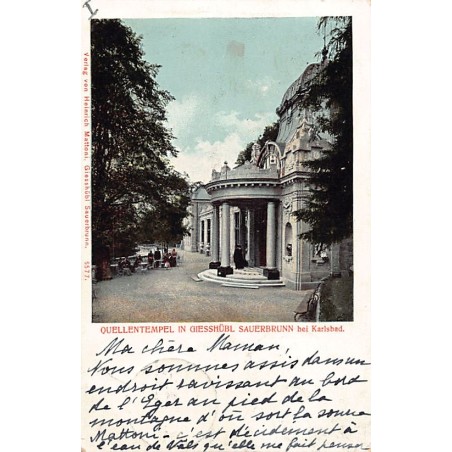 Verlag von Heinrich Mattoni, Giesshübl Sauerbrunn. 
QUELLENTEMPEL IN GIESSHÜBL SAUERBRUNN bei Karlsbad.
Ma chère Maman,
Nous sommes assis dans un
endroit ravissant au bord
de l'Eger au pied de la
montagne d'où sort la source
Mattoni - c'est décidément à
l'eau de Vals qu'elle me fait penser